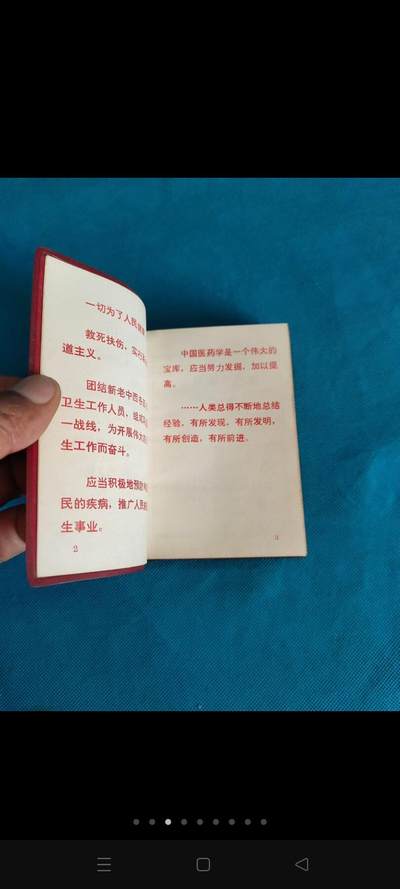 一切为了人民
救死扶伤，实
道主义。
团结新老中西
卫生工作人员，组
一战线，为开展伟大
生工作而奋斗。
应当积极地预防
民的疾病，推广人民
生事业。
2
中国医药学是一个伟大的
宝库，应当努力发掘，加以提
高。
……人类总得不断地总结
经验，有所发现，有所发明，
有所创造，有所前进。
3